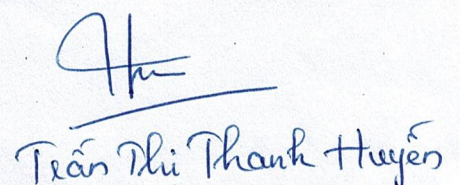 Trần Thi Thanh Huyền